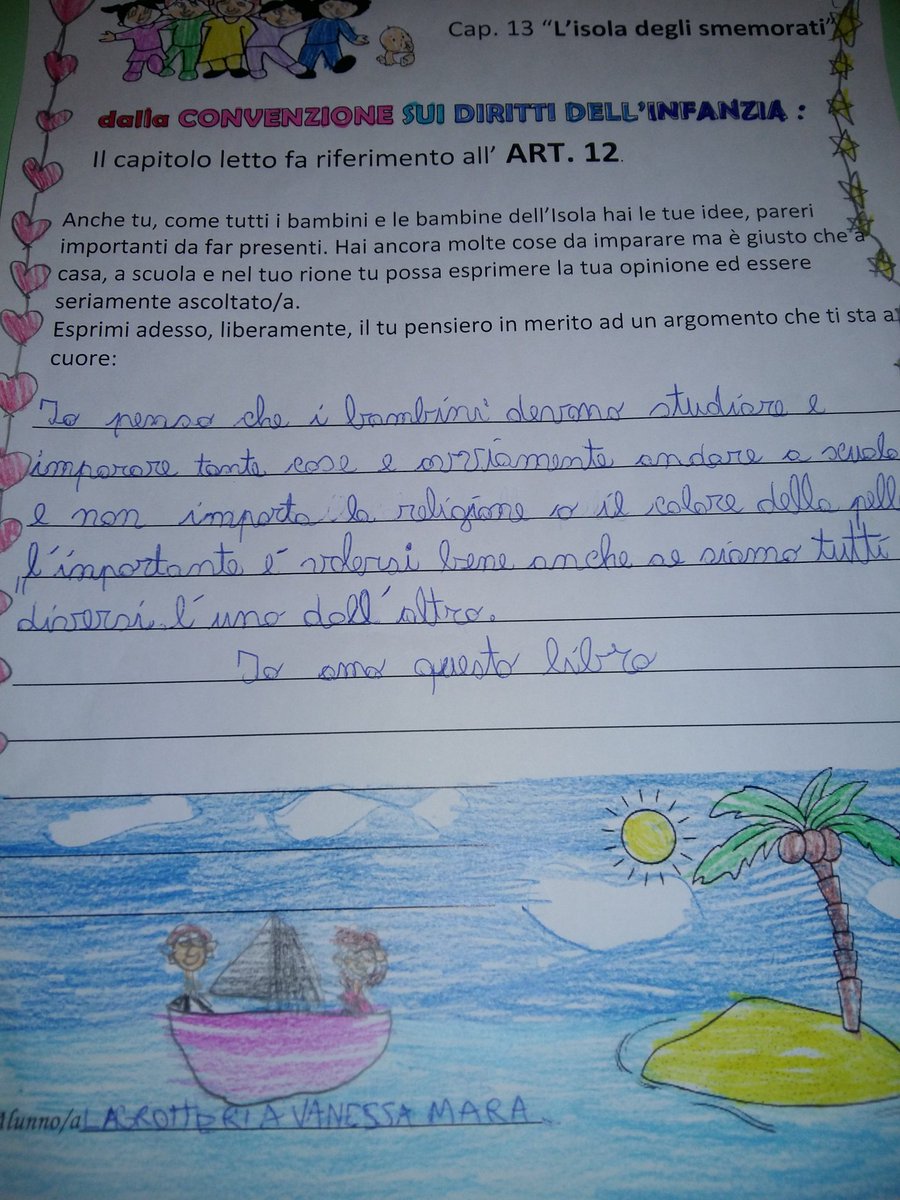 Cap. 13 “L’isola degli smemorati”
dalla CONVENZIONE SUI DIRITTI DELL’INFANZIA :
Il capitolo letto fa riferimento all’ ART. 12.
Anche tu, come tutti i bambini e le bambine dell’Isola hai le tue idee, pareri
importanti da far presenti. Hai ancora molte cose da imparare ma è giusto che a
casa, a scuola e nel tuo rione tu possa esprimere la tua opinione ed essere
seriamente ascoltato/a.
Esprimi adesso, liberamente, il tu pensiero in merito ad un argomento che ti sta a
cuore:
Io penso che i bambini devono studiare e
imparare tante cose e ovviamente andare a scuola
e non importa la religione o il colore della pell
l'inportante é volersi bene anche se siamo tutti
diversi l'uno dall'altro.
Io amo questo libro
lunno/a LAGROTTERIA VANESSA MARA